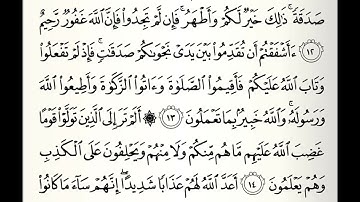 صَدَقَةً ۚ ذَٰلِكَ خَيْرٌ لَّكُمْ وَأَطْهَرُ ۚ فَإِن لَّمْ تَجِدُوا۟ فَإِنَّ ٱللَّهَ غَفُورٌ رَّحِيمٌ
١٢ ءَأَشْفَقْتُمْ أَن تُقَدِّمُوا۟ بَيْنَ يَدَىْ نَجْوَىٰكُمْ صَدَقَٰتٍ ۚ فَإِذْ لَمْ تَفْعَلُوا۟
وَتَابَ ٱللَّهُ عَلَيْكُمْ فَأَقِيمُوا۟ ٱلصَّلَوٰةَ وَءَاتُوا۟ ٱلزَّكَوٰةَ وَأَطِيعُوا۟ ٱللَّهَ
وَرَسُولَهُۥ ۚ وَٱللَّهُ خَبِيرٌۢ بِمَا تَعْمَلُونَ ١٣ ۞ أَلَمْ تَرَ إِلَى ٱلَّذِينَ تَوَلَّوْا۟ قَوْمًا
غَضِبَ ٱللَّهُ عَلَيْهِم مَّا هُم مِّنكُمْ وَلَا مِنْهُمْ وَيَحْلِفُونَ عَلَى ٱلْكَذِبِ
وَهُمْ يَعْلَمُونَ ١٤ أَعَدَّ ٱللَّهُ لَهُمْ عَذَابًا شَدِيدًا ۖ إِنَّهُمْ سَآءَ مَا كَانُوا۟